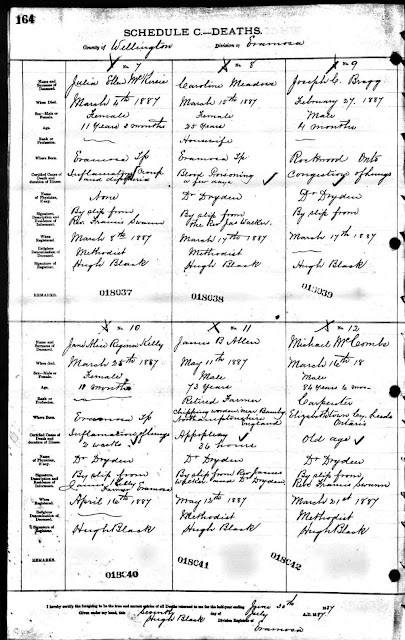 164
SCHEDULE C.—DEATHS.
County of Wellington Division of Eramosa
No 7 No 8 No 9
Name and Surname of Deceased.
Julia Ellen Caroline Meadows Joseph C. Bragg
When Died.
March 4th 1887 March 15th 1887 February 27. 1887
Sex—Male or Female.
Female Female Male
Age.
11 Years 2 months 25 Years 4 months
Rank or Profession.
Housewife
Where Born.
Eramosa Tp Eramosa Tp Rockwood Onto
Certified Cause of Death and duration of Illness.
Inflammatory Croup and diptheria Blood Poisoning a few days Congestion of lungs
Name of Physician, if any.
None Dr Dryden Dr Dryden
Signature, Description and Residence of Informant.
By slip from Rev. Francis Swann By slip from the Rev Jas Walker. By slip from
When Registered.
March 8th 1887 March 17th 1887 March 17th 1887
Religious Denomination of Deceased.
Methodist Methodist
Signature of Registrar.
Hugh Black Hugh Black Hugh Black
REMARKS.
018037 018038 018039
No 10 No 11 No 12
Name and Surname of Deceased.
Jane Regina Kelly James B Allen Michael McCombs
When Died.
March 25th 1887 May 11th 1887 March 16th 18
Sex—Male or Female.
Female Male Male
Age.
18 months 73 Years 84 Years 6 mos
Rank or Profession.
Retired Farmer Carpenter
Where Born.
Eramosa Tp Northamptonshire England Elizabethtown Co. Leeds Ontario
Certified Cause of Death and duration of Illness.
Inflamation of lungs 2 weeks Appoplexy 36 hours Old age
Name of Physician, if any.
Dr Dryden Dr Dryden Dr Dryden
Signature, Description and Residence of Informant.
By slip from Kelly Farmer Eramosa By slip from Rev James Walker and Dr Dryden By slip from Rev. Francis Swann
When Registered.
April 14th 1887 May 13th 1887 March 21st 1887
Religious Denomination of Deceased.
Methodist Methodist
Signature of Registrar.
Hugh Black Hugh Black Hugh Black
REMARKS.
018040 018041 018042
I hereby certify the foregoing to be the true and correct entries of all Deaths returned to me for the half-year ending June 30th 1887
Given under my hand, this Seventh day of July A.D. 1887.
Hugh Black Division Registrar of Eramosa